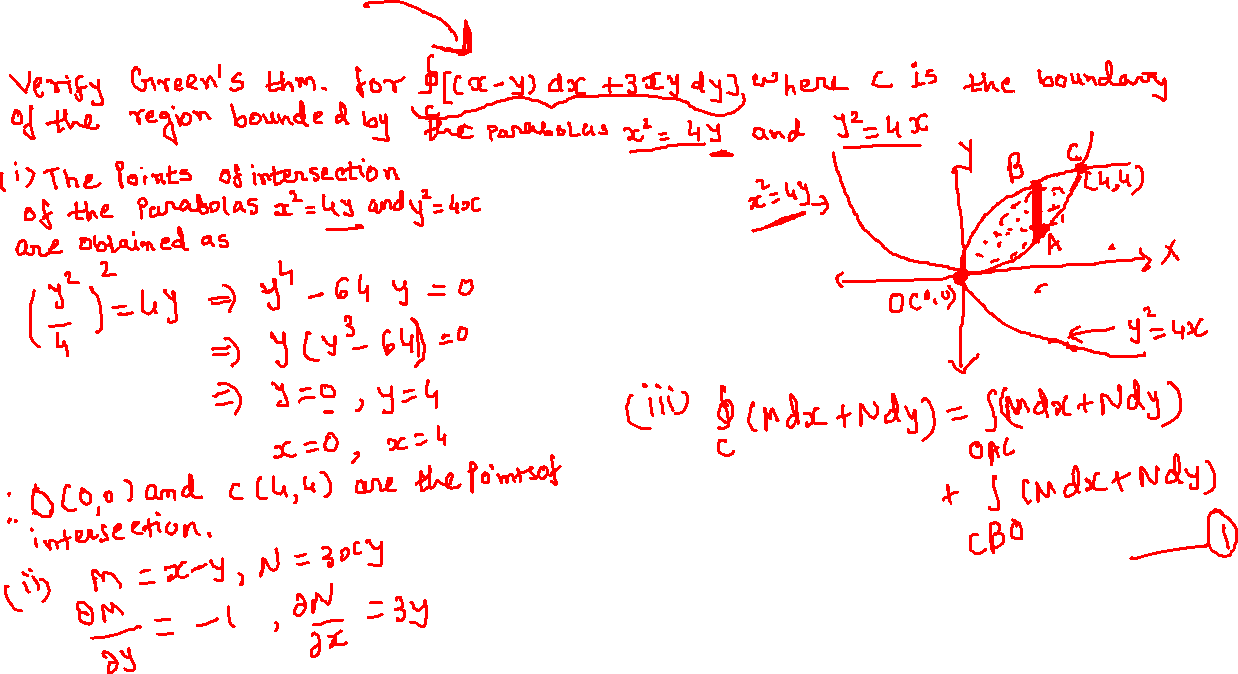 Verify Green's thm. for ∮[(x-y) dx + 3xy dy] where c is the boundary
of the region bounded by the parabolas x² = 4y and y² = 4x
(i) The Points of intersection
of the Parabolas x² = 4y and y² = 4x
are obtained as
(y²/4)² = 4y ⇒ y⁴ - 64 y = 0
⇒ y (y³ - 64) = 0
⇒ y = 0 , y = 4
x = 0 , x = 4
∴ O(0,0) and C(4,4) are the Points of
intersection.
(ii) M = x-y, N = 3xy
∂M/∂y = -1 , ∂N/∂x = 3y
Y
B
C
(4,4)
x² = 4y →
A
X
O(0,0)
y² = 4x
(iii) ∮_C (Mdx + Ndy) = ∫_OAC (Mdx + Ndy)
+ ∫_CBO (Mdx + Ndy)
1